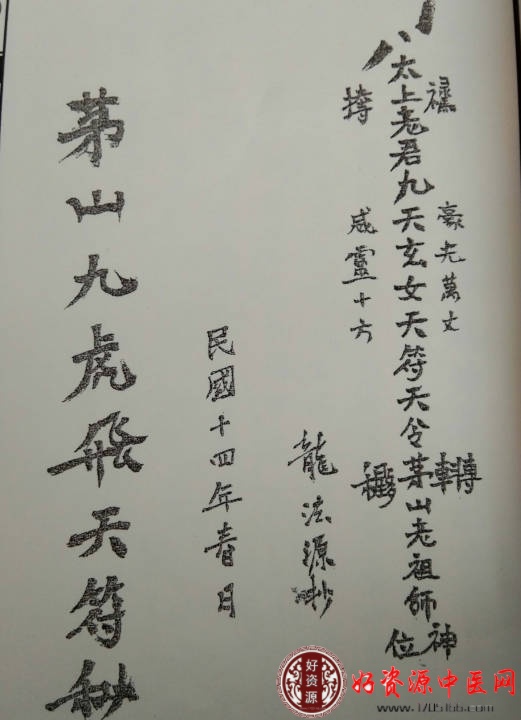 太上老君九天玄女天符天令茅山老祖師神位
豪光萬丈
威靈十方
轉
龍法源抄
民國十四年春日
茅山九虎飛天符秘
好資源
好资源中医网